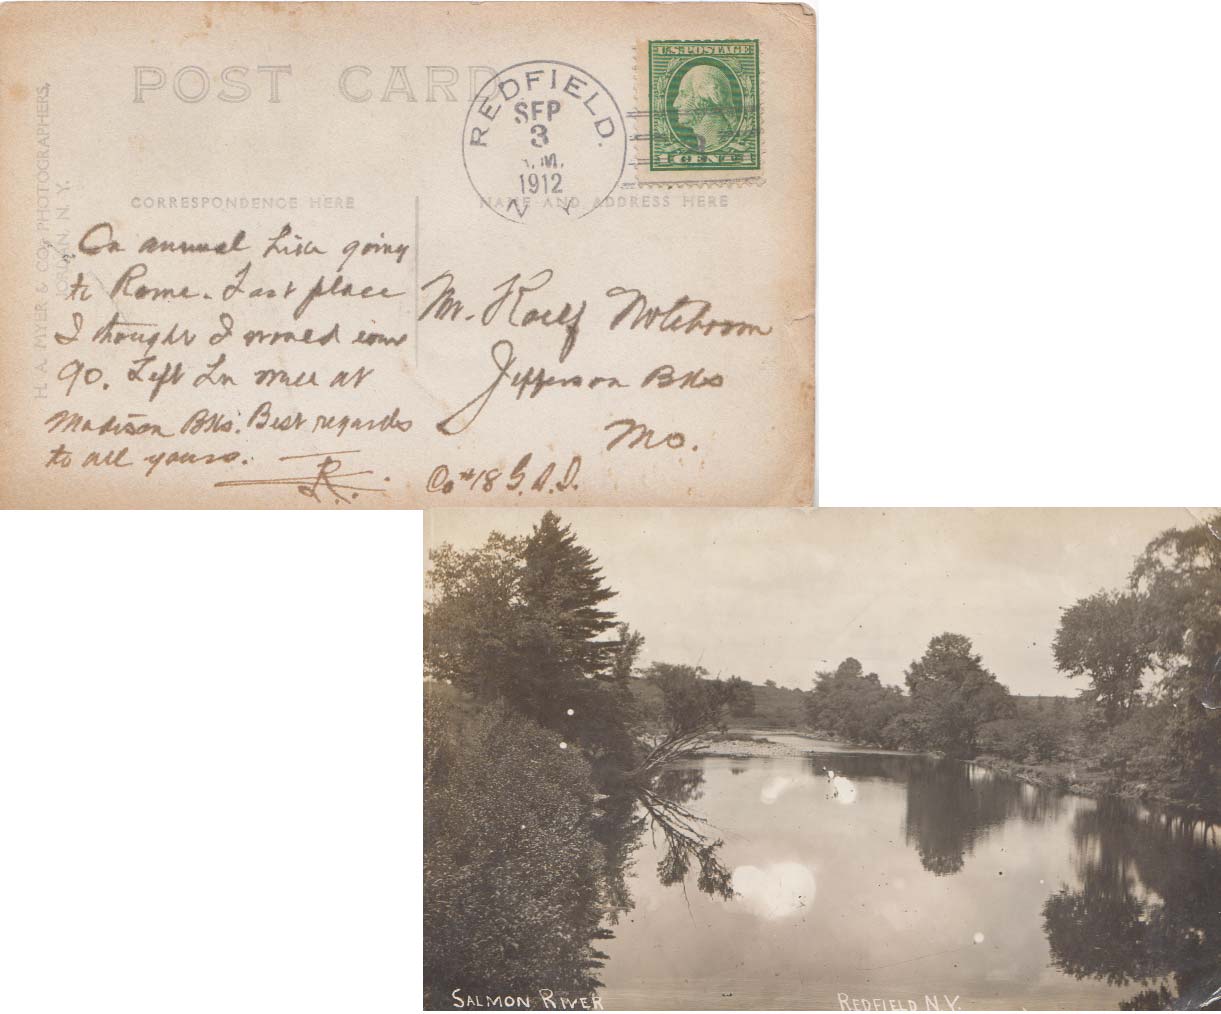 POST CARD
REDFIELD.
SEP
3
A.M.
1912
N Y
U.S. POSTAGE
1 CENT 1
H. A. MYER & CO. PHOTOGRAPHERS,
JORDAN, N. Y.
CORRESPONDENCE HERE
NAME AND ADDRESS HERE
On annual hike going
to Rome. Last place
I thought I would come
90. Left Ln mcc at
Madison Bks. Best regards
to all yours.
R.
Mr. Roelf Noteboom
Jefferson Bks
Mo.
Co #18 G.A.I.
SALMON RIVER
REDFIELD N.Y.